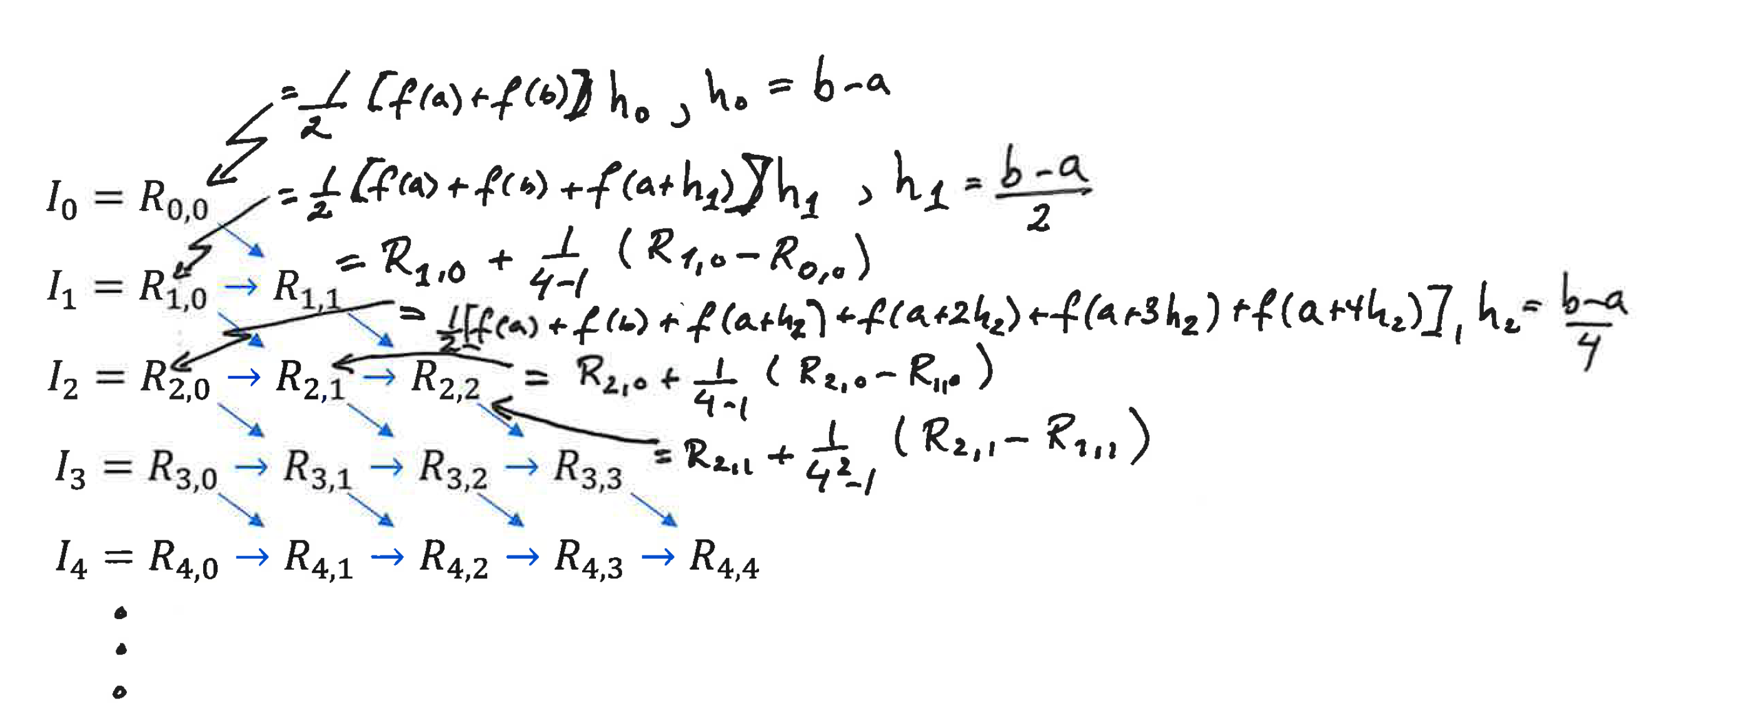 = 1/2 [f(a) + f(b)] h₀ , h₀ = b-a
I₀ = R₀,₀ = 1/2 [f(a) + f(b) + f(a+h₁)] h₁ , h₁ = (b-a)/2
I₁ = R₁,₀ → R₁,₁ = R₁,₀ + 1/(4-1) (R₁,₀ - R₀,₀)
= 1/2 [f(a) + f(b) + f(a+h₂) + f(a+2h₂) + f(a+3h₂) + f(a+4h₂)] , h₂ = (b-a)/4
I₂ = R₂,₀ → R₂,₁ → R₂,₂ = R₂,₀ + 1/(4-1) (R₂,₀ - R₁,₀)
I₃ = R₃,₀ → R₃,₁ → R₃,₂ → R₃,₃ = R₂,₁ + 1/(4²-1) (R₂,₁ - R₁,₁)
I₄ = R₄,₀ → R₄,₁ → R₄,₂ → R₄,₃ → R₄,₄